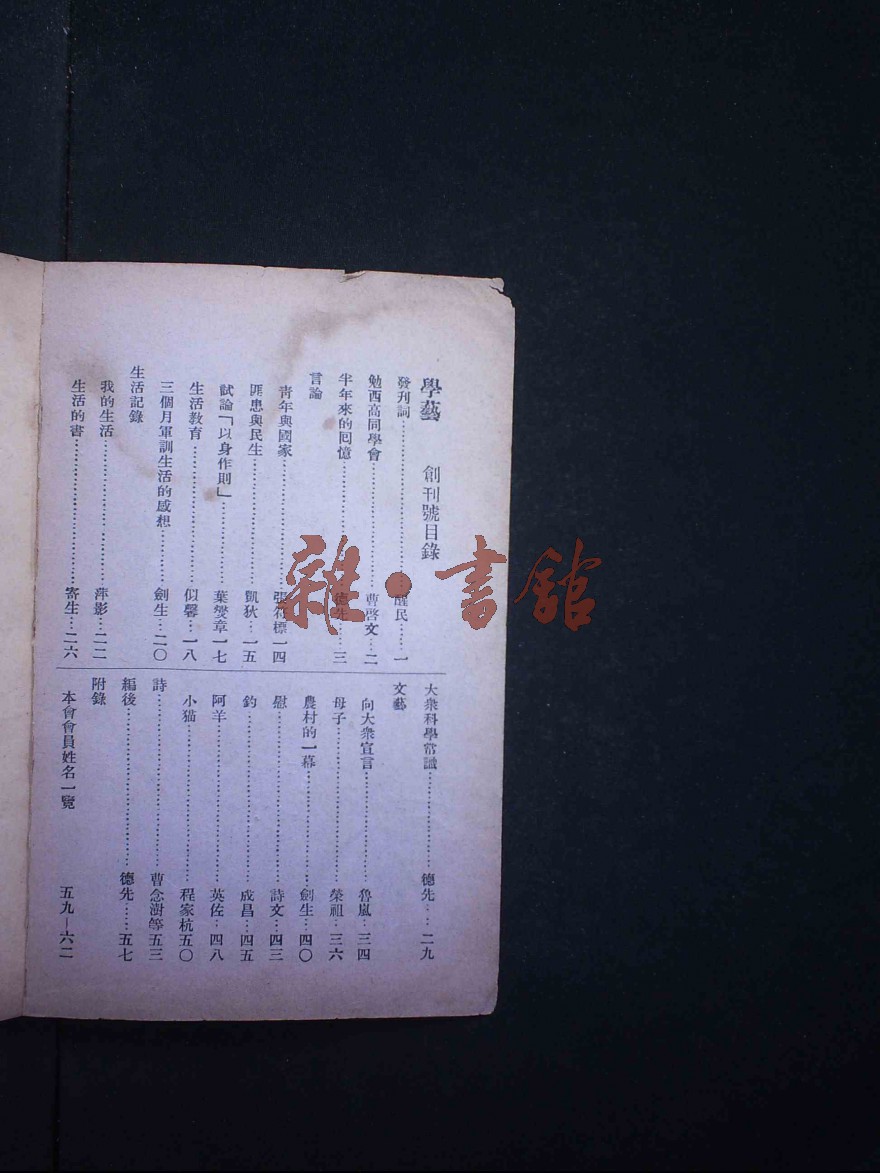 學藝 創刊號目錄
發刊詞……醒民…一
勉西高同學會……曹啓文…二
半年來的囘憶……德先…三
言論
靑年與國家……張符標一四
匪患與民生……凱狄…一五
試論「以身作則」……葉燮章一七
生活教育……似馨…一八
三個月軍訓生活的感想……劍生…二〇
生活記錄
我的生活……萍影…二二
生活的書……寄生…二六
大衆科學常識……德先…二九
文藝
向大衆宣言……魯嵐…三四
母子……榮祖…三六
農村的一幕……劍生…四〇
慰……詩文…四三
釣……成昌…四五
阿羊……英佐…四八
小猫……程家杭五〇
詩……曹念澍等五三
編後……德先……五七
附錄
本會會員姓名一覽 五九—六二
雜·書館